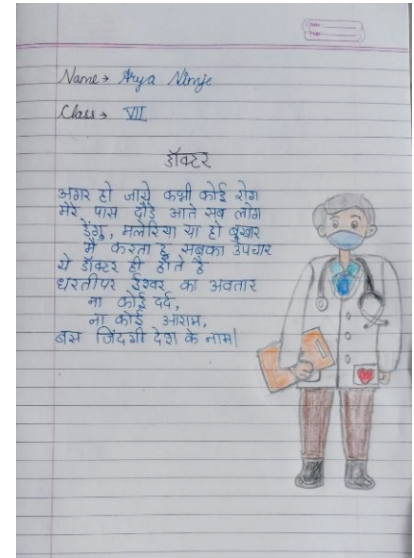 Name → Arya Nimje
Class → VII
डॉक्टर
अगर हो जाये कभी कोई रोग
मेरे पास दौडे आते सब लोग
डेंगु, मलेरिया या हो बुखार
मै करता हू सबका उपचार
ये डॉक्टर ही होते है
धरतीपर ईश्वर का अवतार
ना कोई दर्द,
ना कोई आराम,
बस जिंदगी देश के नाम|